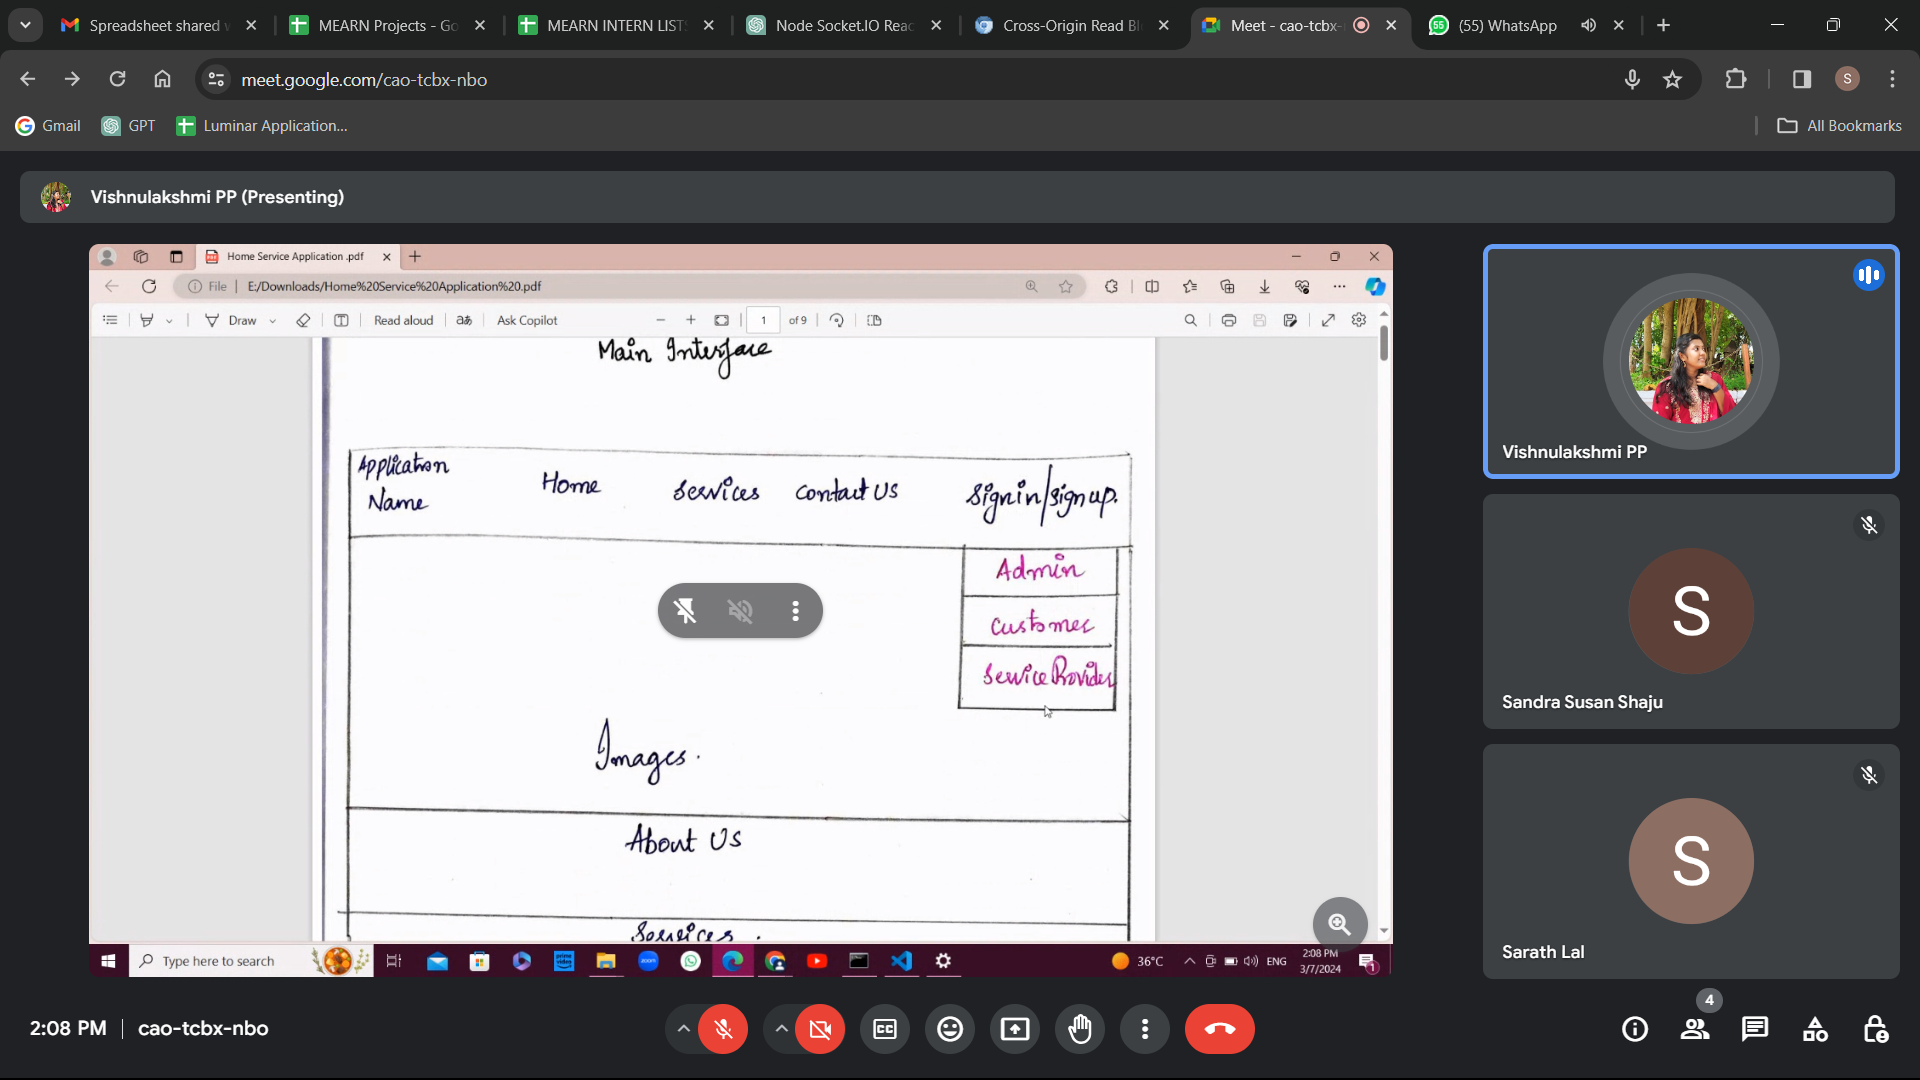 Spreadsheet shared w
MEARN Projects - Go
MEARN INTERN LIST
Node Socket.IO Reac
Cross-Origin Read Bl
Meet - cao-tcbx-
55
(55) WhatsApp
meet.google.com/cao-tcbx-nbo
S
Gmail
GPT
Luminar Application...
All Bookmarks
Vishnulakshmi PP (Presenting)
Home Service Application .pdf
File
E:/Downloads/Home%20Service%20Application%20.pdf
Draw
Read aloud
aあ
Ask Copilot
1
of 9
Main Interface
Application
Name
Home
Services
Contact Us
Signin/signup.
Admin
Customer
Service Provider
Images.
About Us
Services.
Type here to search
36°C
ENG
2:08 PM
3/7/2024
1
Vishnulakshmi PP
S
Sandra Susan Shaju
S
Sarath Lal
2:08 PM
cao-tcbx-nbo
4